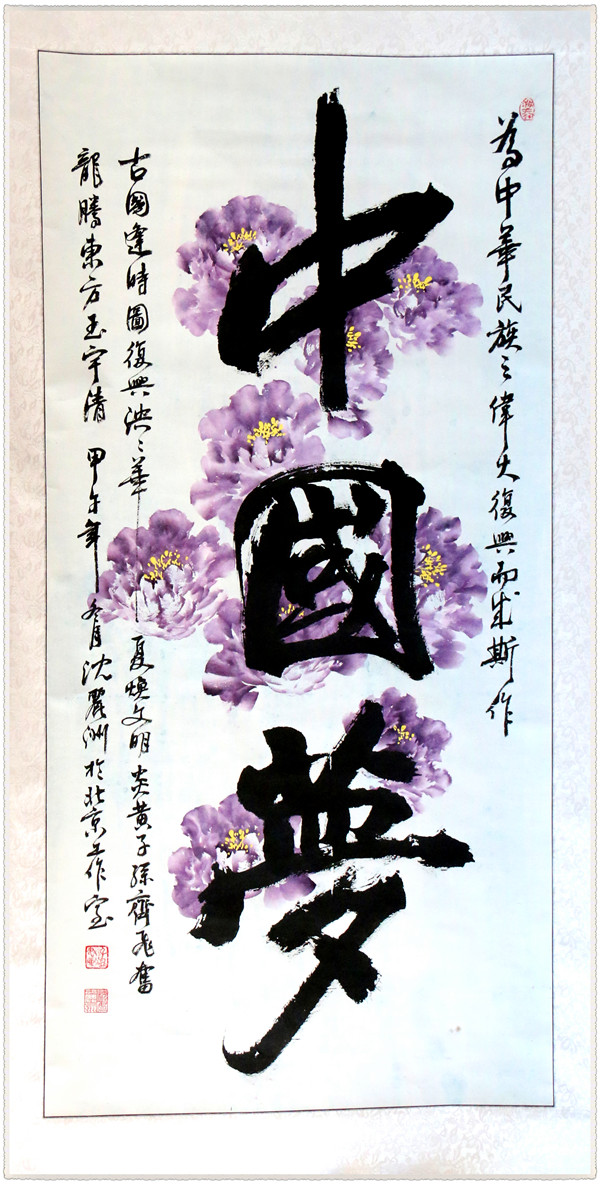 為中華民族之偉大復興而成斯作
中國夢
古國逢時圖復興泱泱華夏煥文明炎黃子孫齊飛奮
龍騰東方玉宇清 甲午年冬月沈麗洲於北京工作室